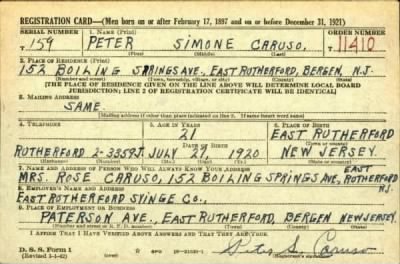 REGISTRATION CARD—(Men born on or after February 17, 1897 and on or before December 31, 1921)
SERIAL NUMBER 1. NAME (Print) ORDER NUMBER
T 159 PETER SIMONE CARUSO. 11410
(First) (Middle) (Last)
2. PLACE OF RESIDENCE (Print)
152 BOILING SPRINGS AVE., EAST RUTHERFORD, BERGEN, N.J.
(Number and street) (Town, township, village, or city) (County) (State)
[THE PLACE OF RESIDENCE GIVEN ON THE LINE ABOVE WILL DETERMINE LOCAL BOARD
JURISDICTION; LINE 2 OF REGISTRATION CERTIFICATE WILL BE IDENTICAL]
3. MAILING ADDRESS
SAME.
[Mailing address if other than place indicated on line 2. If same insert word same]
4. TELEPHONE 5. AGE IN YEARS 6. PLACE OF BIRTH
21 EAST RUTHERFORD
DATE OF BIRTH (Town or county)
RUTHERFORD 2-3359J. JULY 27 1920 NEW JERSEY.
7. NAME AND ADDRESS OF PERSON WHO WILL ALWAYS KNOW YOUR ADDRESS
MRS. ROSE CARUSO, 152 BOILING SPRINGS AVE., EAST RUTHERFORD N.J.
8. EMPLOYER'S NAME AND ADDRESS
EAST RUTHERFORD SYINGE CO.,
9. PLACE OF EMPLOYMENT OR BUSINESS
PATERSON AVE., EAST RUTHERFORD, BERGEN NEW JERSEY.
(Number and street or R. F. D. number) (Town) (County) (State)
I AFFIRM THAT I HAVE VERIFIED ABOVE ANSWERS AND THAT THEY ARE TRUE.
D. S. S. Form 1
(Revised 1-1-42)
Peter S. Caruso